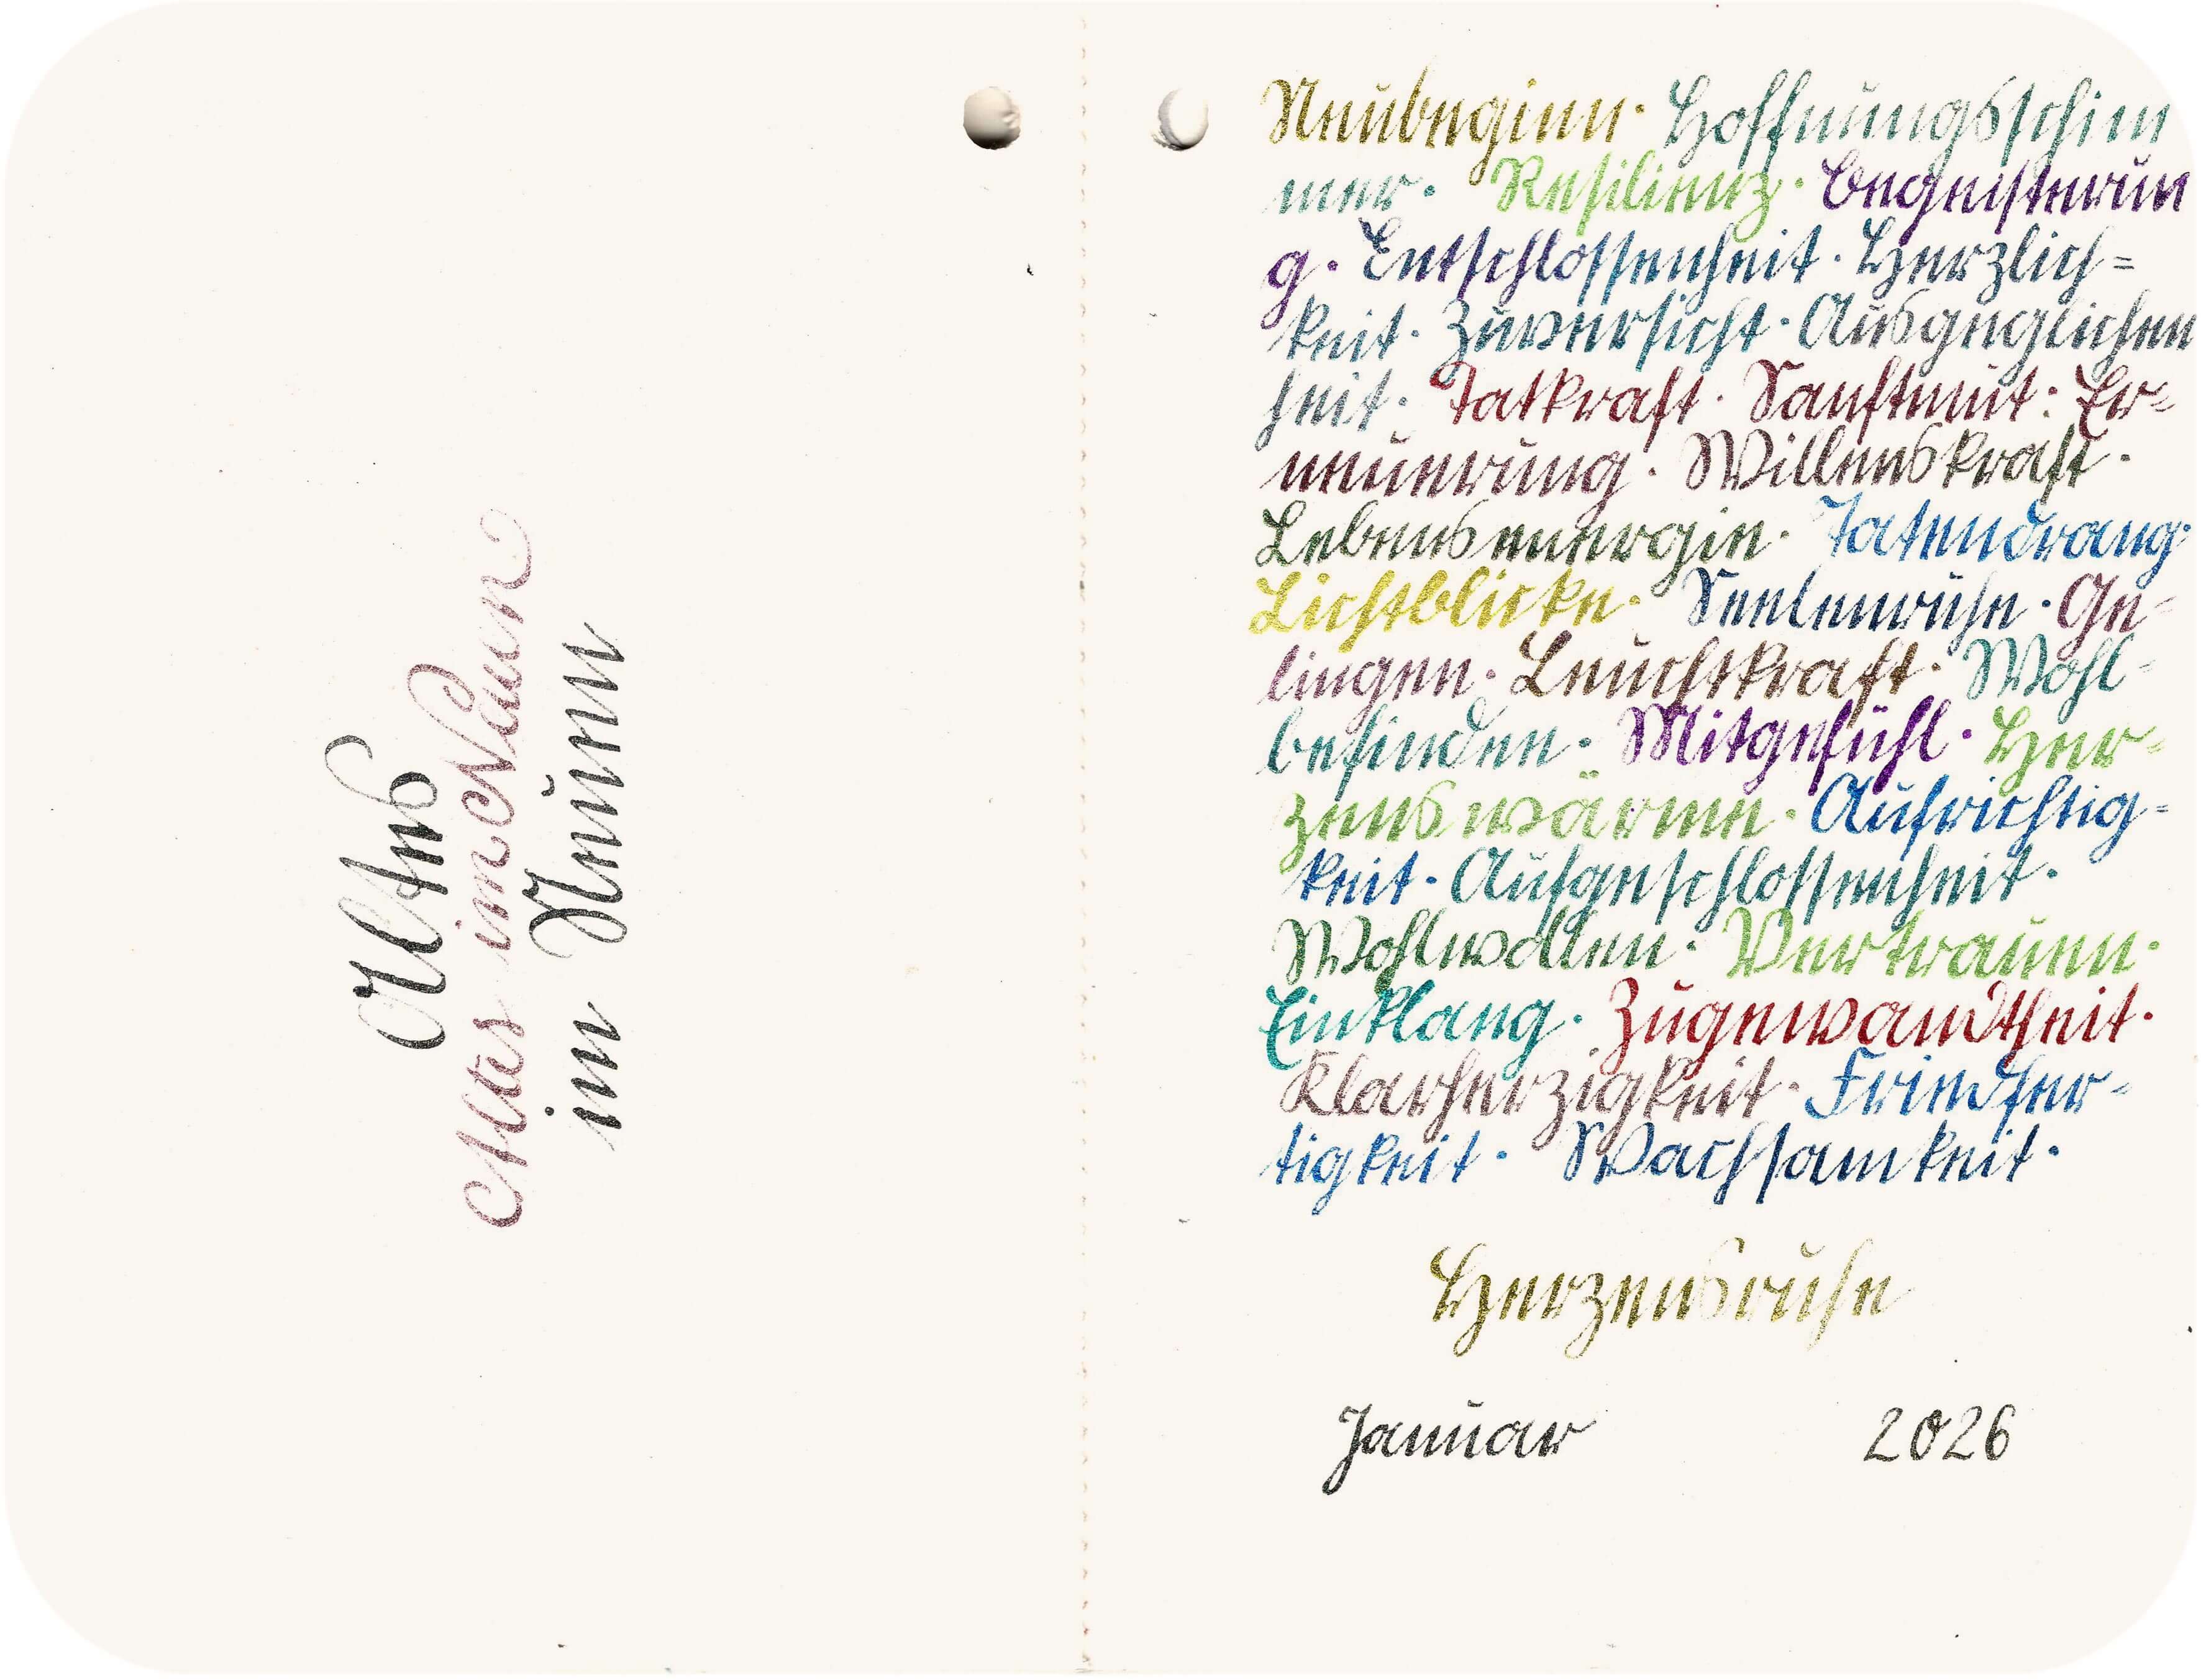 Altes
Altes im Neuen
im Neuen
Neubeginn · Hoffnungsschim
mer · Resilienz · Begeisterun
g · Entschlossenheit · Herzlich=
keit · Zuversicht · Ausgeglichen
heit · Tatkraft · Sanftmut : Er=
neuerung · Willenskraft ·
Lebensenergie · Tatendrang ·
Lichtblicke · Seelenruhe · Ge-
lingen · Leuchtkraft · Wohl-
befinden · Mitgefühl · Her-
zenswärme · Aufrichtig=
keit · Aufgeschlossenheit ·
Wohlwollen · Vertrauen ·
Einklang · Zugewandtheit ·
Klarherzigkeit · Friedfer-
tigkeit · Wachsamkeit ·
Herzensruhe
Januar 2026